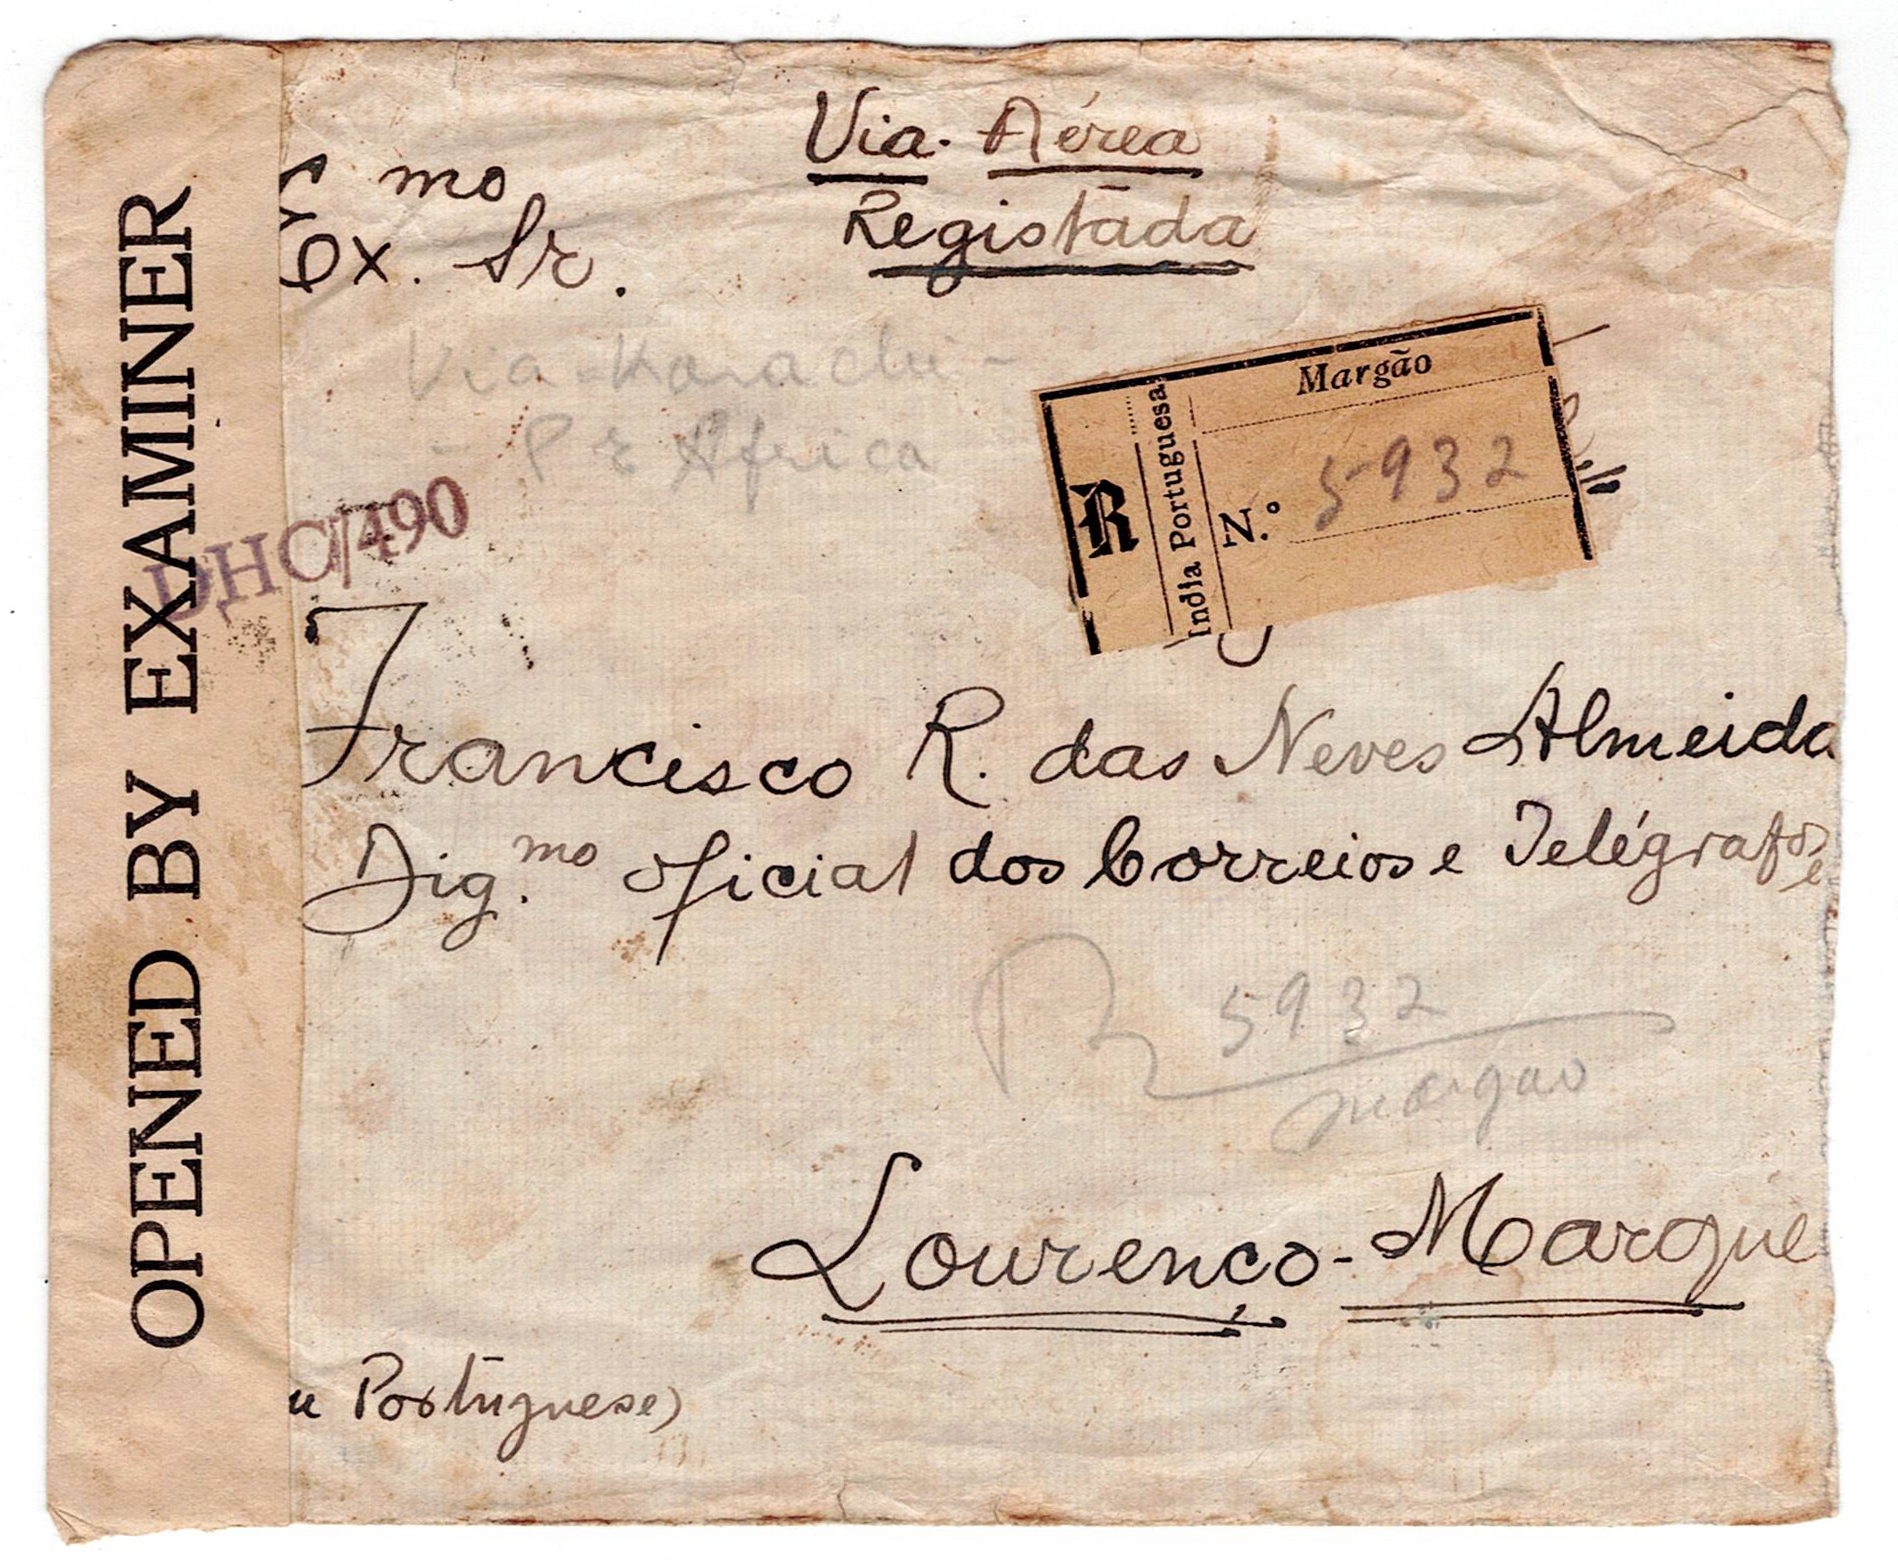 OPENED BY EXAMINER
DHC/490
Via. Aérea
Registada
mo
Ex. Sr.
Via - Karachi -
Africa
R
India Portuguesa
Margão
N.º 5932
Francisco R. das Neves Almeida
Dig.mo oficial dos Correios e Telégrafos
R 5932
Margao
Lourenço - Marque
Portuguese)